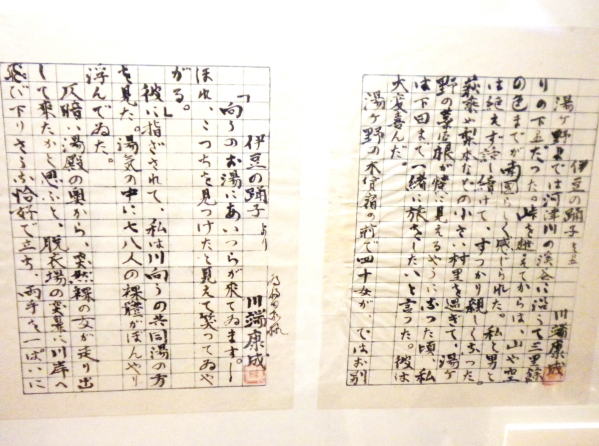 伊豆の踊子より 川端康成
湯ヶ野までは河津川の渓谷に沿うて三里餘
りの下りだった。峠を越えてからは、山や空
の色までが南國らしく感じられた。私と男と
は絶えず話し續けて、すっかり親しくなった。
荻乗や梨本などの小さい村里を過ぎて、湯ヶ
野の藁屋根が麓に見えるやうになった頃、私
は下田まで一緒に旅をしたいと言った。彼は
大變喜んだ。
湯ヶ野の木賃宿の前で四十女が、ではお別
伊豆の踊子より 川端康成
「向うのお湯にあいつらが來てゐます。―
ほれ、こっちを見つけたと見えて笑ってゐや
がる。」
彼に指ざされて、私は川向うの共同湯の方
を見た。湯気の中に七八人の裸體がぼんやり
浮んでゐた。
仄暗い湯殿の奥から、突然裸の女が走り出
して來たかと思ふと、脱衣場の突鼻に川岸へ
飛び下りさうな恰好で立ち、両手を一ぱいに